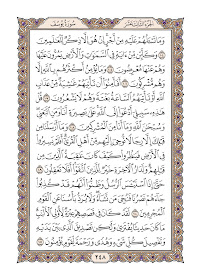 الجزء الثالث عشر سورة يوسف
وَمَا تَسْـَٔلُهُمْ عَلَيْهِ مِنْ أَجْرٍ إِنْ هُوَ إِلَّا ذِكْرٌ لِّلْعَـٰلَمِينَ
١٠٤ وَكَأَيِّن مِّنْ ءَايَةٍ فِي ٱلسَّمَـٰوَٰتِ وَٱلْأَرْضِ يَمُرُّونَ عَلَيْهَا
وَهُمْ عَنْهَا مُعْرِضُونَ ١٠٥ وَمَا يُؤْمِنُ أَكْثَرُهُم بِٱللَّهِ إِلَّا
وَهُم مُّشْرِكُونَ ١٠٦ أَفَأَمِنُوٓا۟ أَن تَأْتِيَهُمْ غَـٰشِيَةٌ مِّنْ عَذَابِ
ٱللَّهِ أَوْ تَأْتِيَهُمُ ٱلسَّاعَةُ بَغْتَةً وَهُمْ لَا يَشْعُرُونَ ١٠٧ قُلْ
هَـٰذِهِۦ سَبِيلِىٓ أَدْعُوٓا۟ إِلَى ٱللَّهِ عَلَىٰ بَصِيرَةٍ أَنَا۠ وَمَنِ ٱتَّبَعَنِى
وَسُبْحَـٰنَ ٱللَّهِ وَمَآ أَنَا۠ مِنَ ٱلْمُشْرِكِينَ ١٠٨ وَمَآ أَرْسَلْنَا مِن
قَبْلِكَ إِلَّا رِجَالًا نُّوحِىٓ إِلَيْهِم مِّنْ أَهْلِ ٱلْقُرَىٰٓ أَفَلَمْ يَسِيرُوا۟
فِى ٱلْأَرْضِ فَيَنظُرُوا۟ كَيْفَ كَانَ عَـٰقِبَةُ ٱلَّذِينَ مِن
قَبْلِهِمْ وَلَدَارُ ٱلْـَٔاخِرَةِ خَيْرٌ لِّلَّذِينَ ٱتَّقَوْا۟ أَفَلَا تَعْقِلُونَ ١٠٩
حَتَّىٰٓ إِذَا ٱسْتَيْـَٔسَ ٱلرُّسُلُ وَظَنُّوٓا۟ أَنَّهُمْ قَدْ كُذِبُوا۟
جَآءَهُمْ نَصْرُنَا فَنُجِّىَ مَن نَّشَآءُ وَلَا يُرَدُّ بَأْسُنَا عَنِ ٱلْقَوْمِ
ٱلْمُجْرِمِينَ ١١٠ لَقَدْ كَانَ فِى قَصَصِهِمْ عِبْرَةٌ لِّأُو۟لِى ٱلْأَلْبَـٰبِ
مَا كَانَ حَدِيثًا يُفْتَرَىٰ وَلَـٰكِن تَصْدِيقَ ٱلَّذِى بَيْنَ يَدَيْهِ
وَتَفْصِيلَ كُلِّ شَىْءٍ وَهُدًى وَرَحْمَةً لِّقَوْمٍ يُؤْمِنُونَ ١١١
٢٤٨